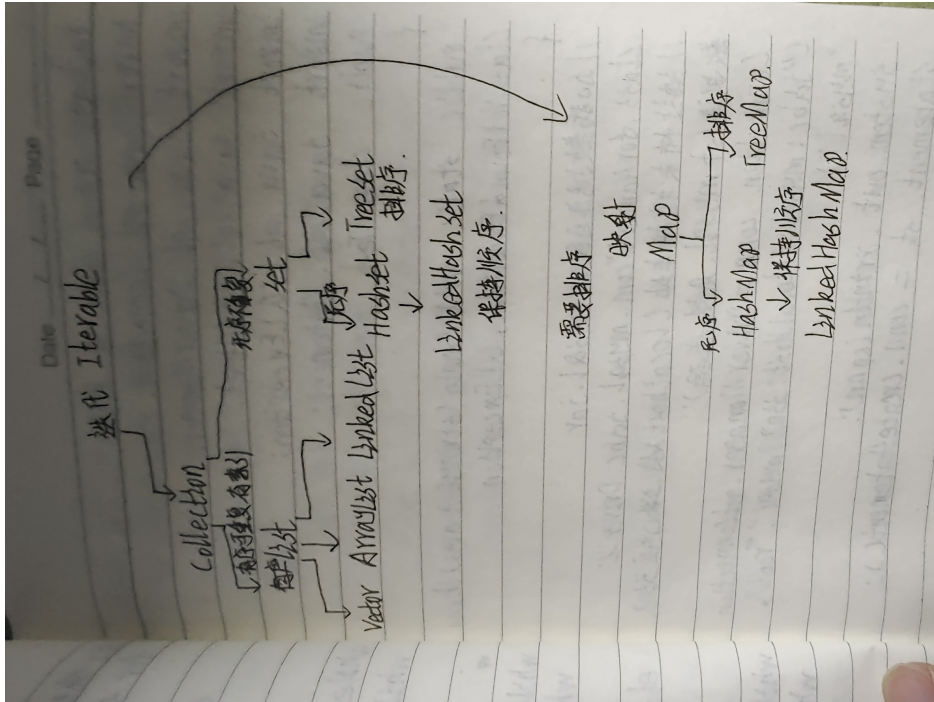 Date / / Place
迭代 Iterable
Collection
有序重复有索引 无序不重复
List Set
无序
Vector ArrayList LinkedList HashSet TreeSet
排序.
LinkedHashSet
保持顺序.
需要排序
映射
Map
无序 排序
HashMap TreeMap.
保持顺序
LinkedHashMap.